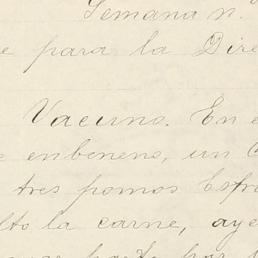 Semana n.
e para la Dire
Vacuno. En e
enbeneno, un
tres pomos Esfre
lto la carne, aye